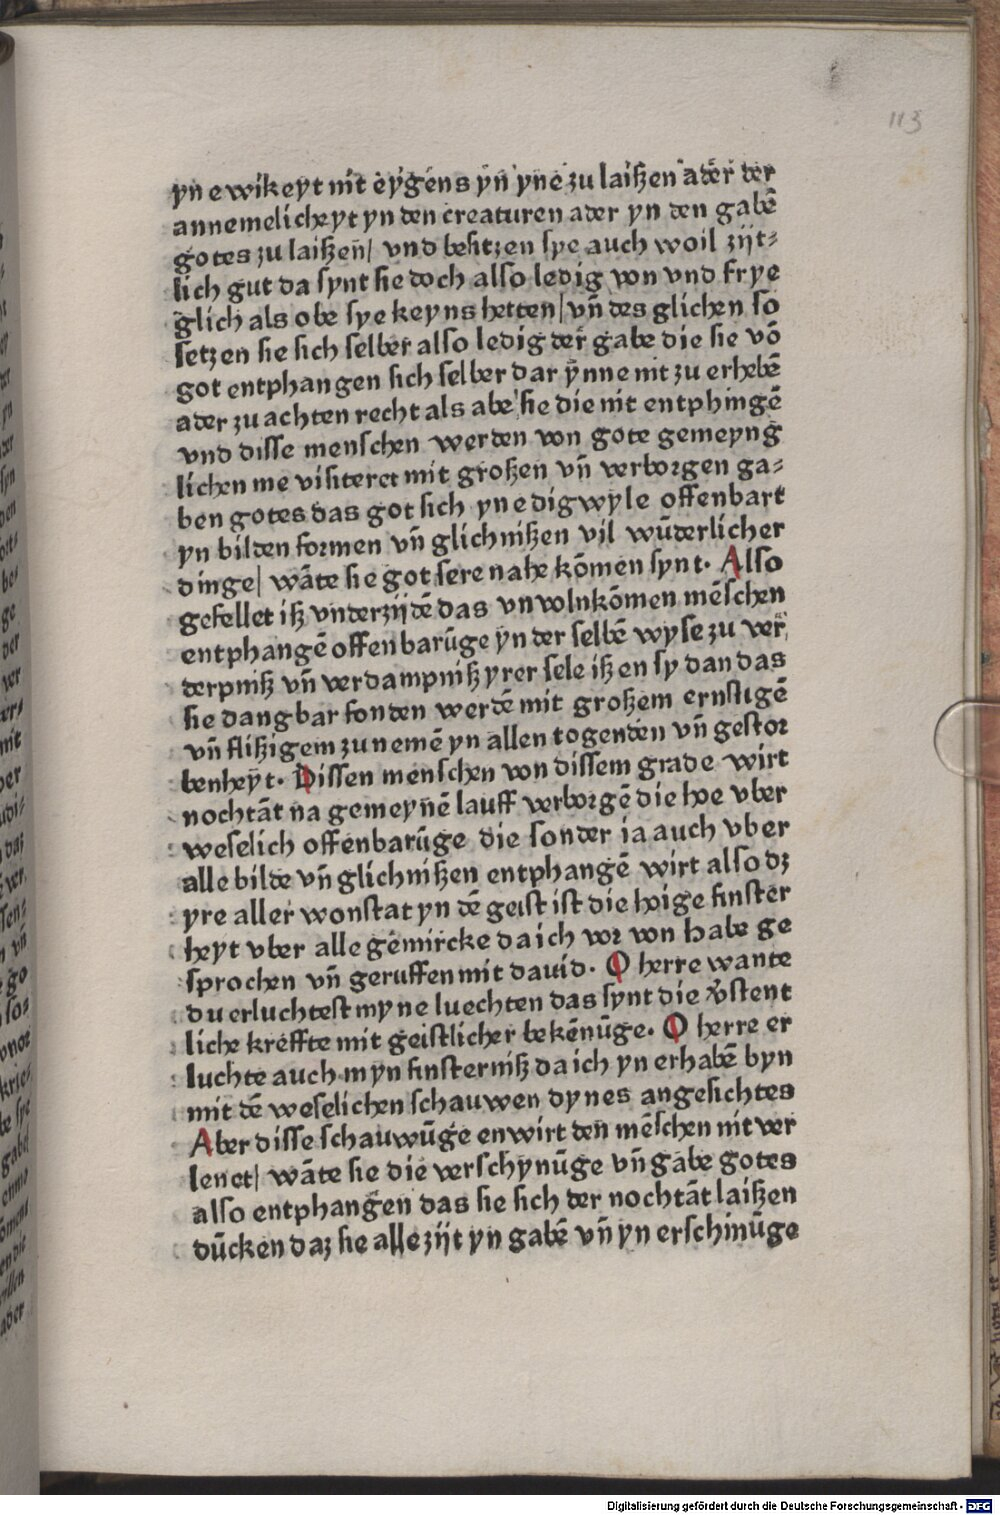 113
yn ewikeyt nit eygens yn yne zu laißen ader der
annemelicheyt yn den creaturen ader yn den gabē
gotes zu laißen/ vnd besitzen sye auch woil zijt-
lich gut da synt sie doch also ledig von vnd frye
glich als obe sye keyns hetten/ vn̄ des glichen so
setzen sie sich selber also ledig der gabe die sie vō
got entphangen sich selber dar ynne nit zu erhebē
ader zu achten recht als abe sie die nit entphingē
vnd disse menschen werden von gote gemeyng
lichen me visiteret mit großen vn̄ verborgen ga-
ben gotes das got sich ynedigwyle offenbart
yn bilden formen vn̄ glichnißen vil wūderlicher
dinge/ wāte sie got sere nahe kōmen synt. Also
gefellet iß vnderzijdē das vnvolnkōmen mēschen
entphangē offenbarūge yn der selbē wyse zu ver
derpniß vn̄ verdampniß yrer sele iß en sy dan das
sie dangbar fonden werdē mit großem ernstigē
vn̄ flißigem zunemē yn allen togenden vn̄ gestor
benheyt. Dissen menschen von dissem grade wirt
nochtāt na gemeynē lauff verborgē die hoe vber
weselich offenbarūge die sonder ia auch vber
alle bilde vn̄ glichnißen entphangē wirt also dz
yre aller wonstat yn dē geist ist die hoige finster
heyt vber alle gemircke da ich vor von habe ge
sprochen vn̄ geruffen mit dauid. O herre wante
du erluchtest myne luechten das synt die v̓stent
liche kreffte mit geistlicher bekēnūge. O herre er
luchte auch myn finsterniß da ich yn erhabē byn
mit dē weselichen schauwen dynes angesichtes
Aber disse schauwūge enwirt den mēschen nit ver
lenet/ wāte sie die verschynūge vn̄ gabe gotes
also entphangen das sie sich der nochtāt laißen
dūcken daz sie alle zijt yn gabē vn̄ yn erschinūge
Digitalisierung gefördert durch die Deutsche Forschungsgemeinschaft - DFG